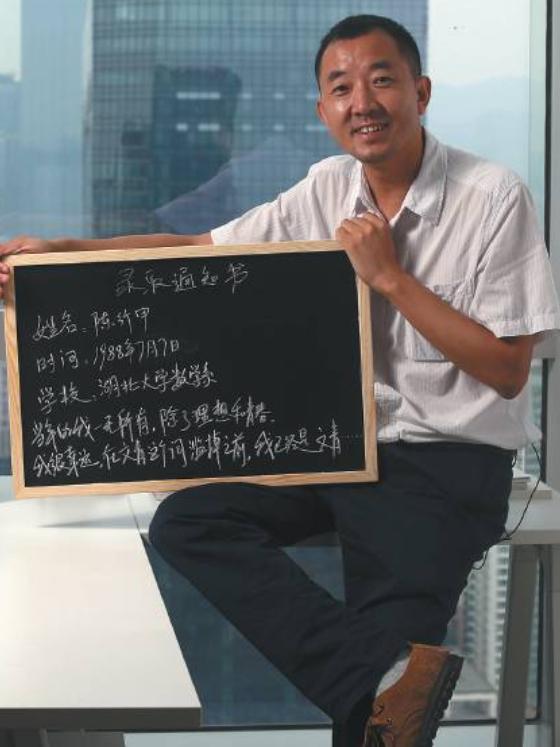 录取通知书
姓名：陈行甲
时间：1988年7月7日
学校：湖北大学数学系
当年的我一无所有，除了理想和青春.
我很幸运，在文青这个词滥掉之前，我已经是文青……